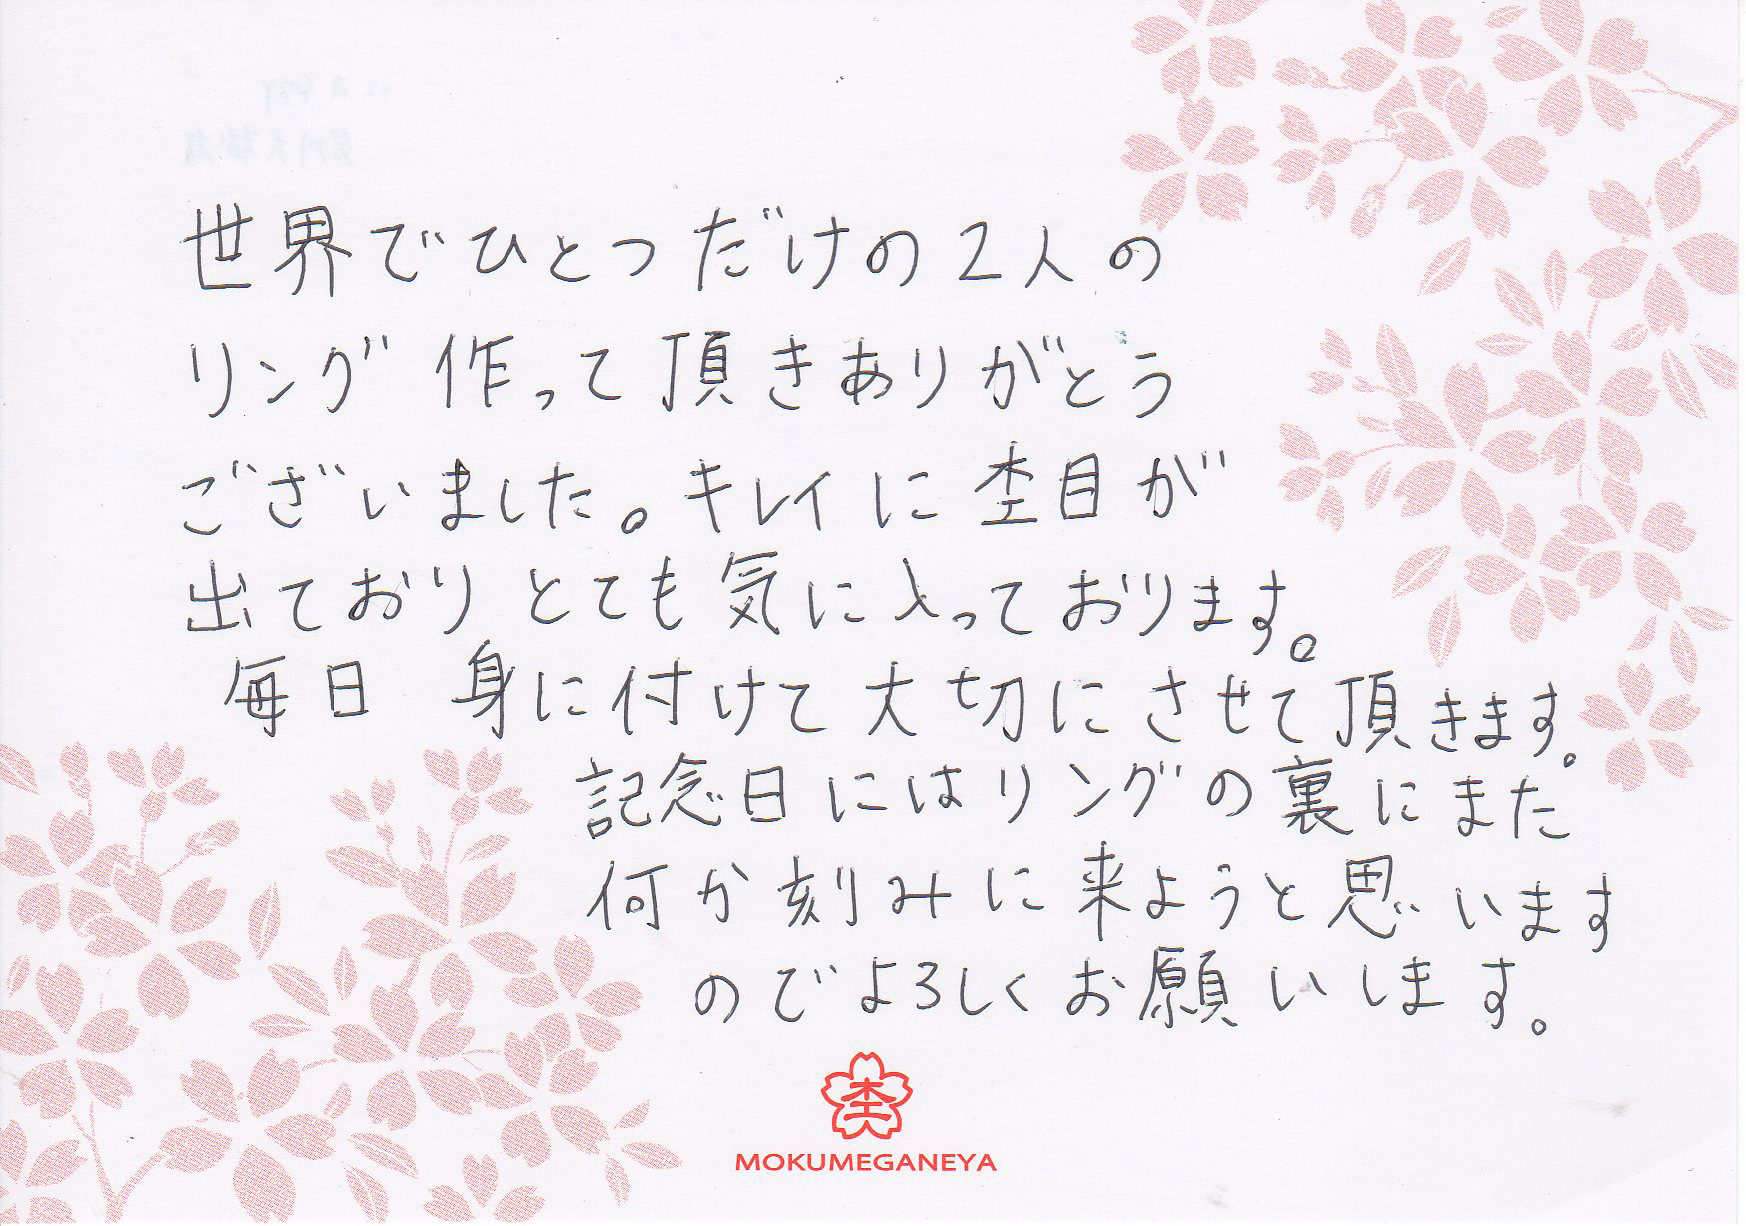 世界でひとつだけの2人の
リング作って頂きありがとう
ございました。キレイに杢目が
出ておりとても気に入っております。
毎日 身に付けて大切にさせて頂きます。
記念日にはリングの裏にまた
何か刻みに来ようと思います
のでよろしくお願いします。
杢
MOKUMEGANEYA